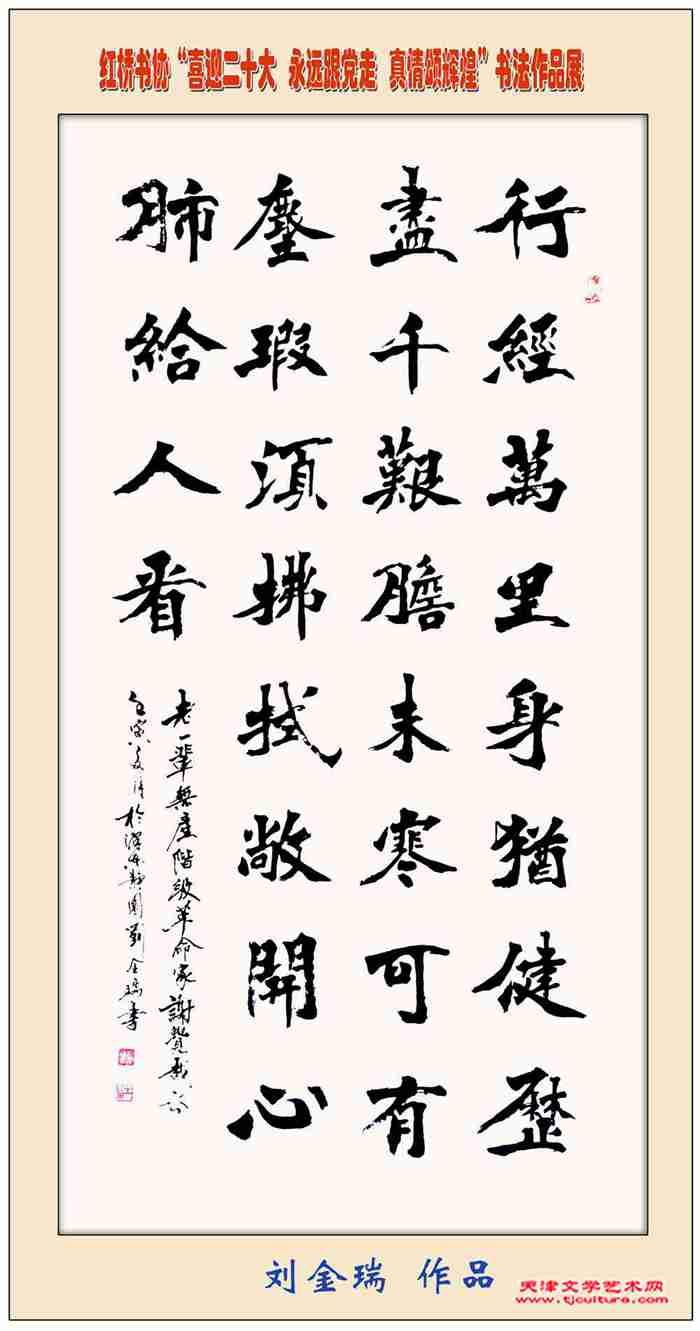 红桥书协“喜迎二十大 永远跟党走 真情颂辉煌”书法作品展
行經萬里身猶健歷
盡千艱膽未寒可有
塵瑕須拂拭敞開心
肺給人看
老一輩無產階級革命家謝覺哉詩
壬寅夏月於津門靜園劉金瑞書
刘金瑞 作品
天津文学艺术网
www.tjculture.com